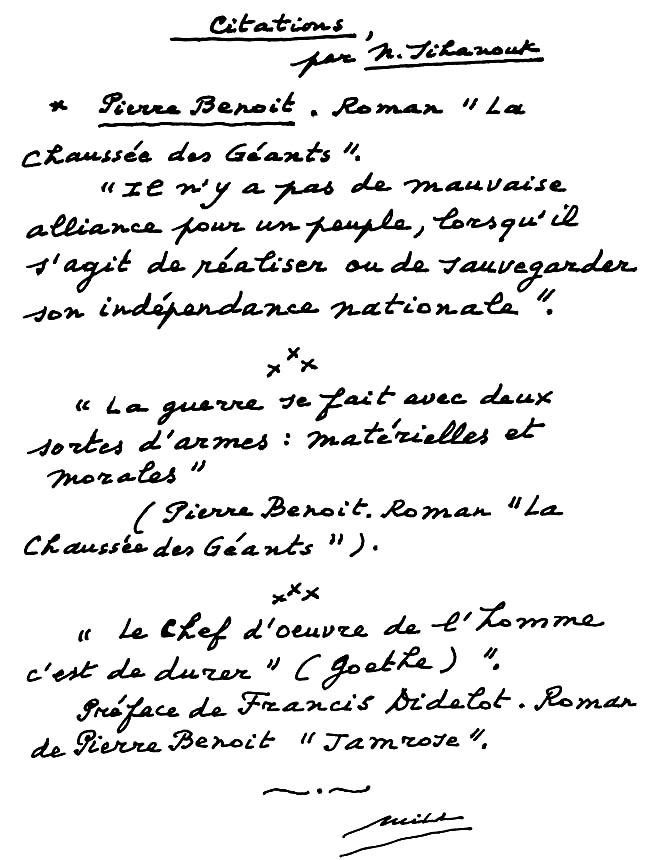 Citations,
par N. Sihanouk
* Pierre Benoit. Roman "La
Chaussée des Géants".
"Il n'y a pas de mauvaise
alliance pour un peuple, lorsqu'il
s'agit de réaliser ou de sauvegarder
son indépendance nationale".
x x x
"La guerre se fait avec deux
sortes d'armes : matérielles et
morales"
(Pierre Benoit. Roman "La
Chaussée des Géants").
x x x
"Le Chef d'oeuvre de l'homme
c'est de durer" (Goethe)".
Préface de Francis Didelot. Roman
de Pierre Benoit "Jamrose".
~.~